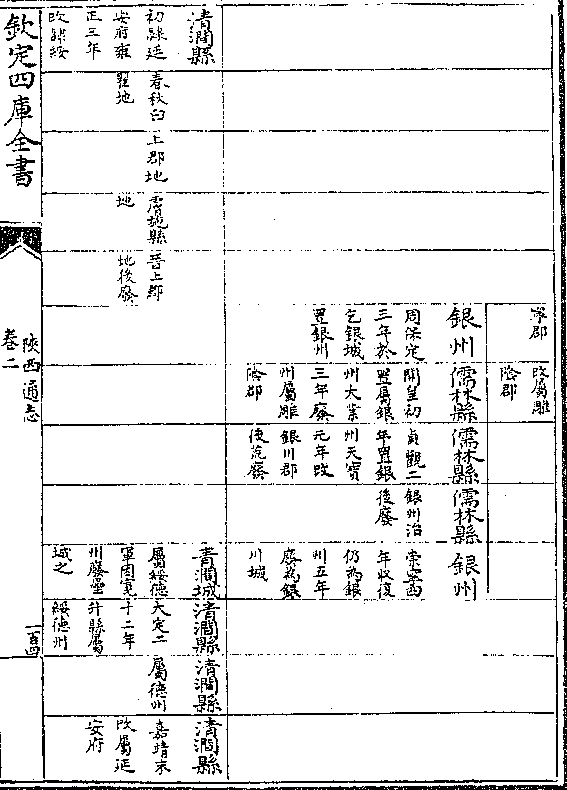 寧郡
改屬雕
陰郡
銀州
周保定
三年於
乞銀城
置銀州
儒林縣
開皇初
置屬銀
州大業
三年廢
州屬雕
陰郡
儒林縣
貞觀二
年置銀
州天寶
元年改
銀川郡
後荒廢
儒林縣
銀州治
後廢
銀州
崇寧四
年收復
仍為銀
州五年
廢為銀
川城
清澗縣
初隸延
安府雍
正三年
改隸綏
春秋白
翟地
上郡地
膚施縣
地
晉上郡
地後廢
青澗城
屬綏德
軍因寬
州廢壘
城之
清澗縣
大定二
十二年
升縣屬
綏德州
清澗縣
屬德州
清澗縣
嘉靖末
改屬延
安府
欽定四庫全書
陝西通志
卷二
一百四